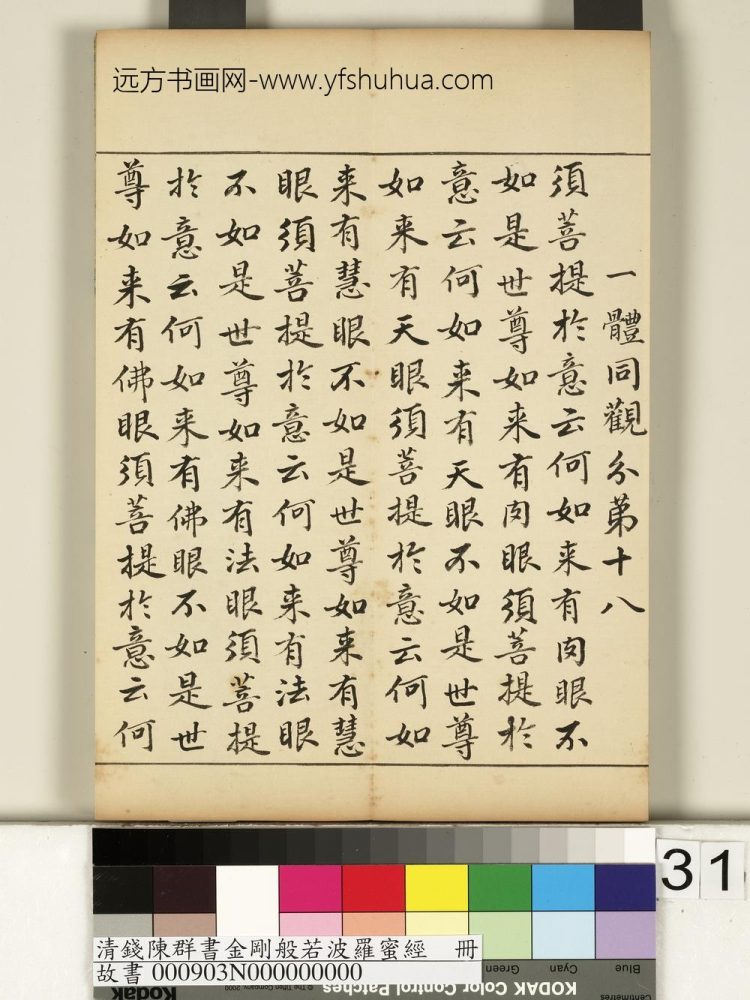 远方书画网-www.yfshuhua.com
一體同觀分第十八
須菩提於意云何如来有肉眼不
如是世尊如来有肉眼須菩提於
意云何如来有天眼不如是世尊
如来有天眼須菩提於意云何如
来有慧眼不如是世尊如来有慧
眼須菩提於意云何如来有法眼
不如是世尊如来有法眼須菩提
於意云何如来有佛眼不如是世
尊如来有佛眼須菩提於意云何
31
清錢陳群書金剛般若波羅蜜經 冊
故書 000903N000000000
Green
Cyan
Blue
© The Tiffen Company, 2000
KODAK Color Control Patches
Kodak
Centimetres